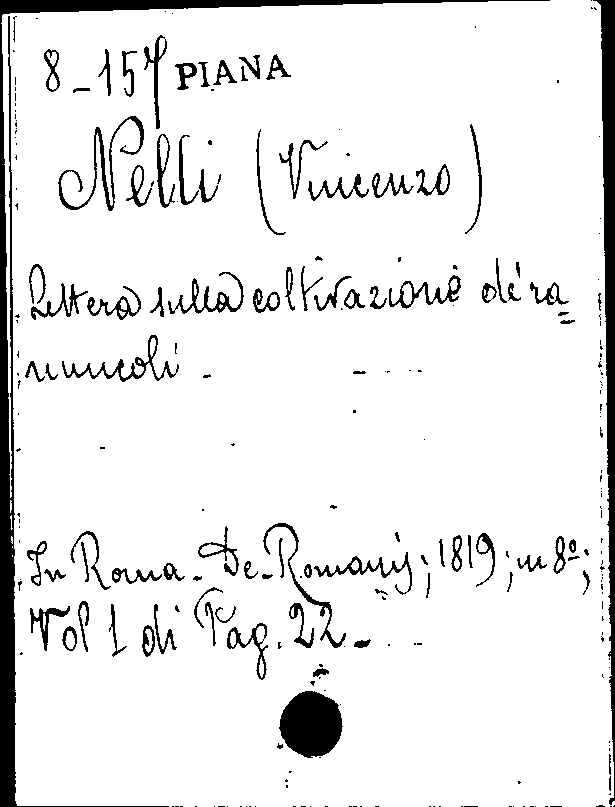 8-157 PIANA
Nelli (Vincenzo)
Lettera sulla coltivazione de' ra=
nuncoli -
In Roma - De-Romanis; 1819; in 8º;
Vol 1 di Pag. 22 -